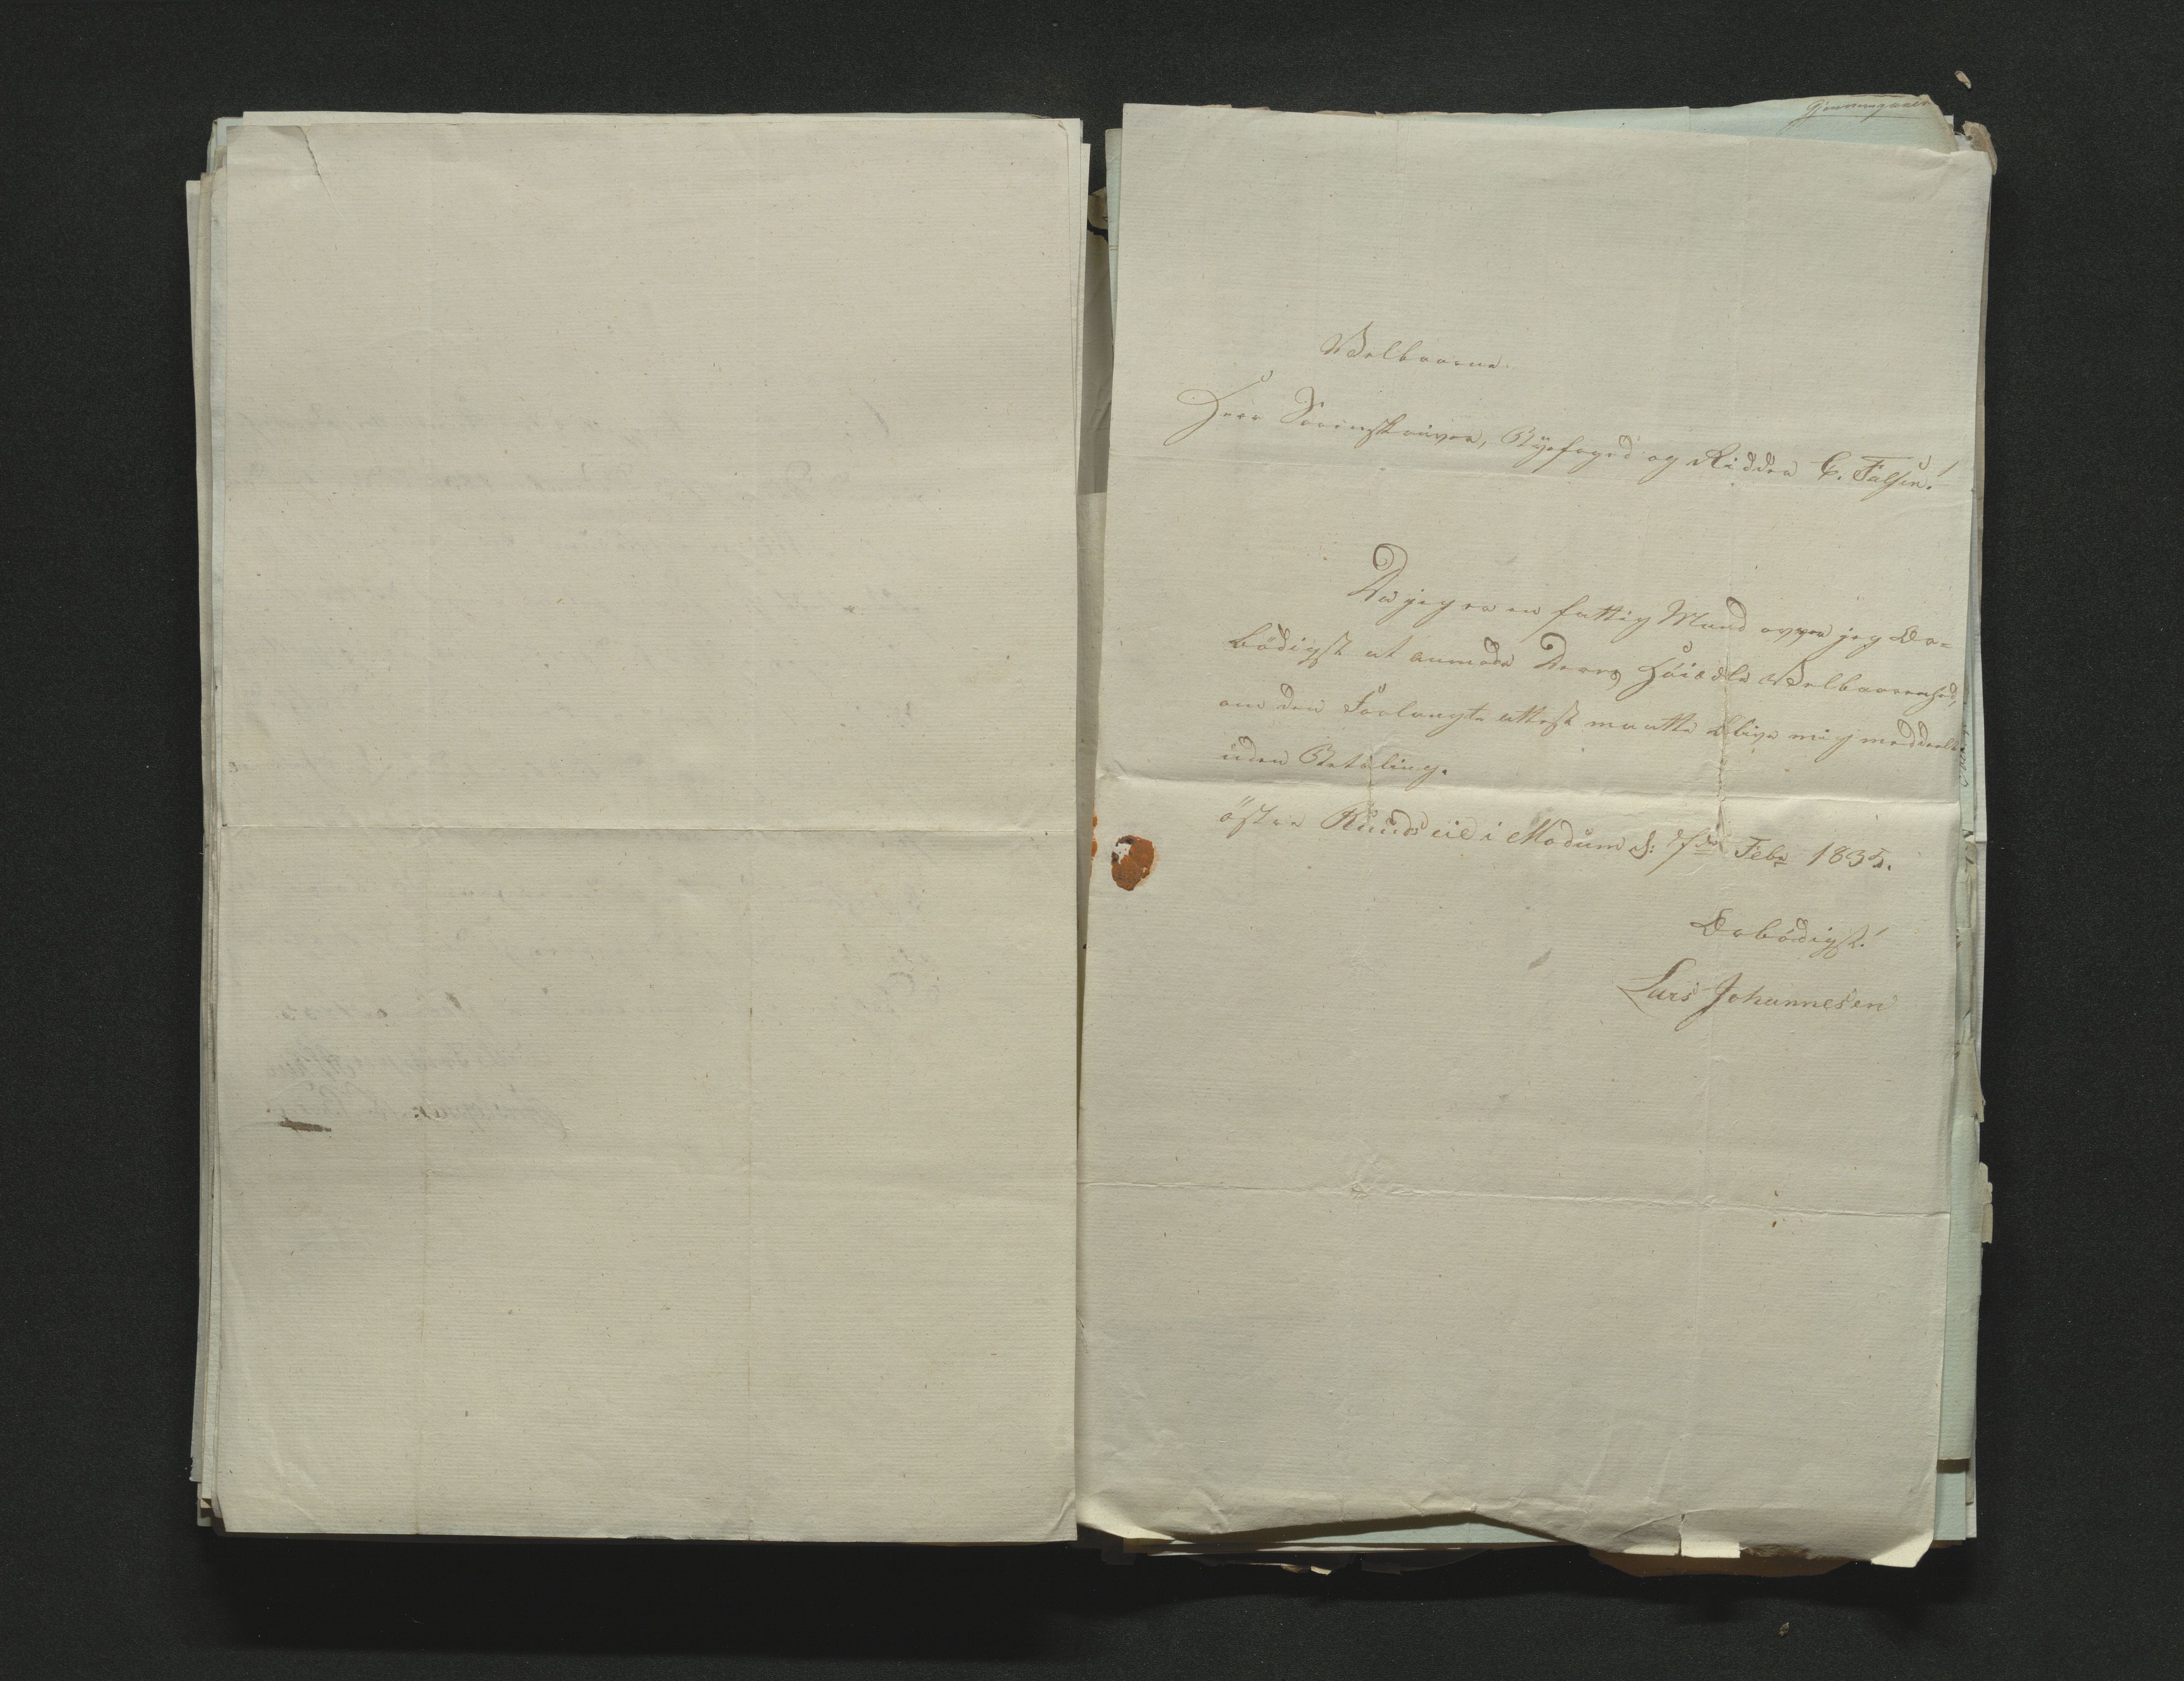 Velbaarne
Herr Sorinskriver, Byefoged og Ridder C. Falsen!
Da jeg er en fattig Mand over jeg Er=
bödigst at anmode Deres Höiædle Velbaarenhed,
om den Forlangte attest maatte blive mig meddeelt
uden Betaling.
östre Ruud eie i Modum d: 7de Febr 1835.
Erbödigst!
Lars Johannesen